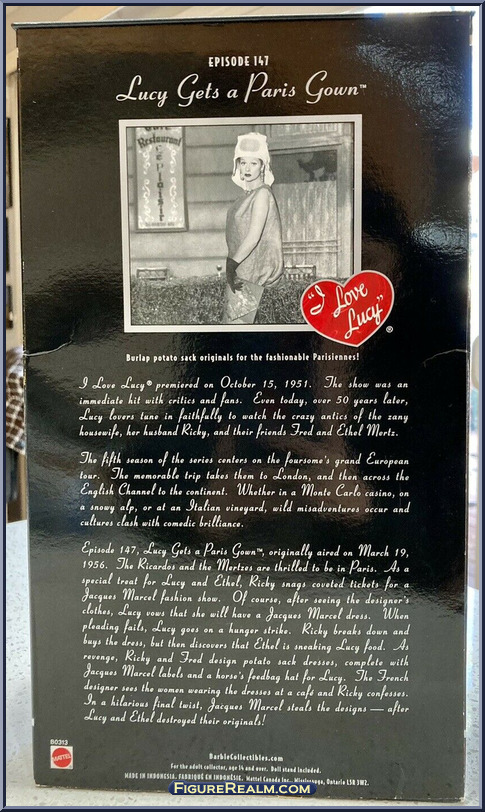 EPISODE 147
Lucy Gets a Paris Gown™
Café
Restaurant
"I Love
Lucy"
®
Burlap potato sack originals for the fashionable Parisiennes!
I Love Lucy® premiered on October 15, 1951. The show was an
immediate hit with critics and fans. Even today, over 50 years later,
Lucy lovers tune in faithfully to watch the crazy antics of the zany
housewife, her husband Ricky, and their friends Fred and Ethel Mertz.
The fifth season of the series centers on the foursome's grand European
tour. The memorable trip takes them to London, and then across the
English Channel to the continent. Whether in a Monte Carlo casino, on
a snowy alp, or at an Italian vineyard, wild misadventures occur and
cultures clash with comedic brilliance.
Episode 147, Lucy Gets a Paris Gown™, originally aired on March 19,
1956. The Ricardos and the Mertzes are thrilled to be in Paris. As a
special treat for Lucy and Ethel, Ricky snags coveted tickets for a
Jacques Marcel fashion show. Of course, after seeing the designer's
clothes, Lucy vows that she will have a Jacques Marcel dress. When
pleading fails, Lucy goes on a hunger strike. Ricky breaks down and
buys the dress, but then discovers that Ethel is sneaking Lucy food. As
revenge, Ricky and Fred design potato sack dresses, complete with
Jacques Marcel labels and a horse's feedbag hat for Lucy. The French
designer sees the women wearing the dresses at a café and Ricky confesses.
In a hilarious final twist, Jacques Marcel steals the designs — after
Lucy and Ethel destroyed their originals!
80313
MATTEL
BarbieCollectibles.com
For the adult collector, age 14 and over. Doll stand included.
MADE IN INDONESIA. FABRIQUÉ EN INDONÉSIE. Mattel Canada Inc., Mississauga, Ontario L5R 3W2.
FigureRealm.com